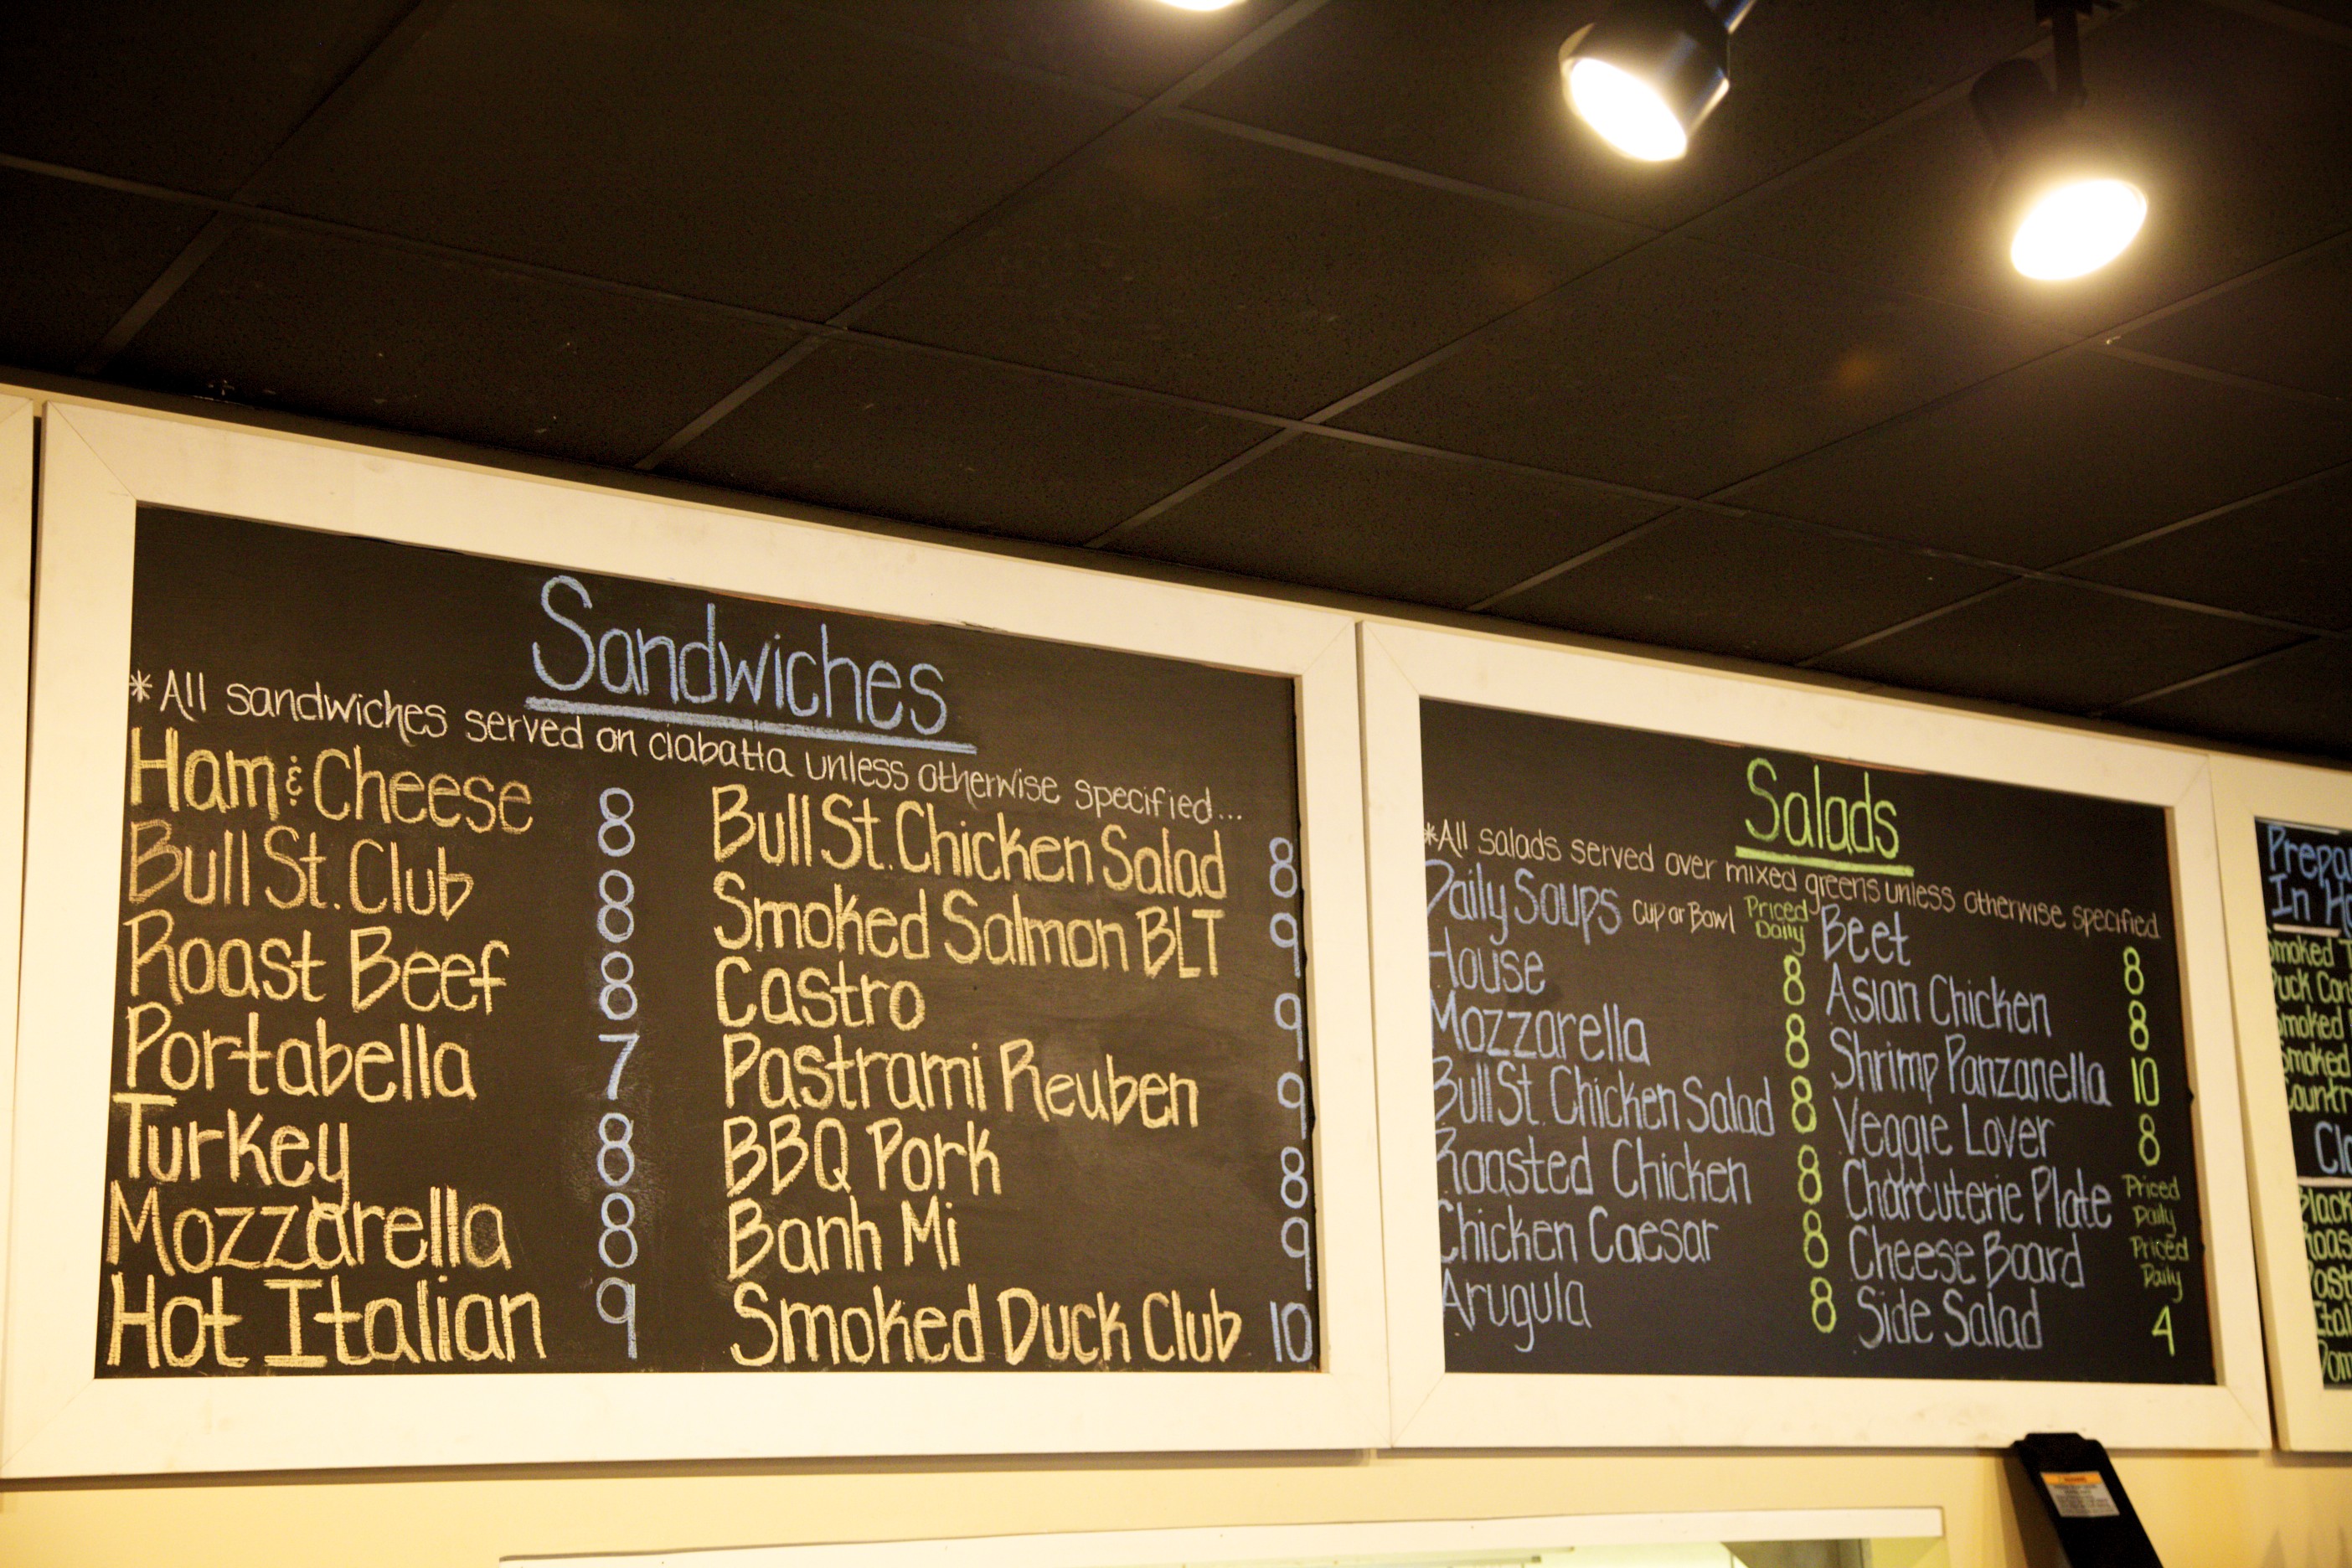 Sandwiches
*All sandwiches served on ciabatta unless otherwise specified...
Ham & Cheese 8
Bull St. Club 8
Roast Beef 8
Portabella 7
Turkey 8
Mozzarella 8
Hot Italian 9
Bull St. Chicken Salad 8
Smoked Salmon BLT 9
Castro 9
Pastrami Reuben 9
BBQ Pork 8
Banh Mi 9
Smoked Duck Club 10
Salads
*All salads served over mixed greens unless otherwise specified
Daily Soups Cup or Bowl Priced Daily
House 8
Mozzarella 8
Bull St. Chicken Salad 8
Roasted Chicken 8
Chicken Caesar 8
Arugula 8
Beet 8
Asian Chicken 8
Shrimp Panzanella 10
Veggie Lover 8
Charcuterie Plate Priced Daily
Cheese Board Priced Daily
Side Salad 4
In
Smoked
Duck
Smoked
Smoked